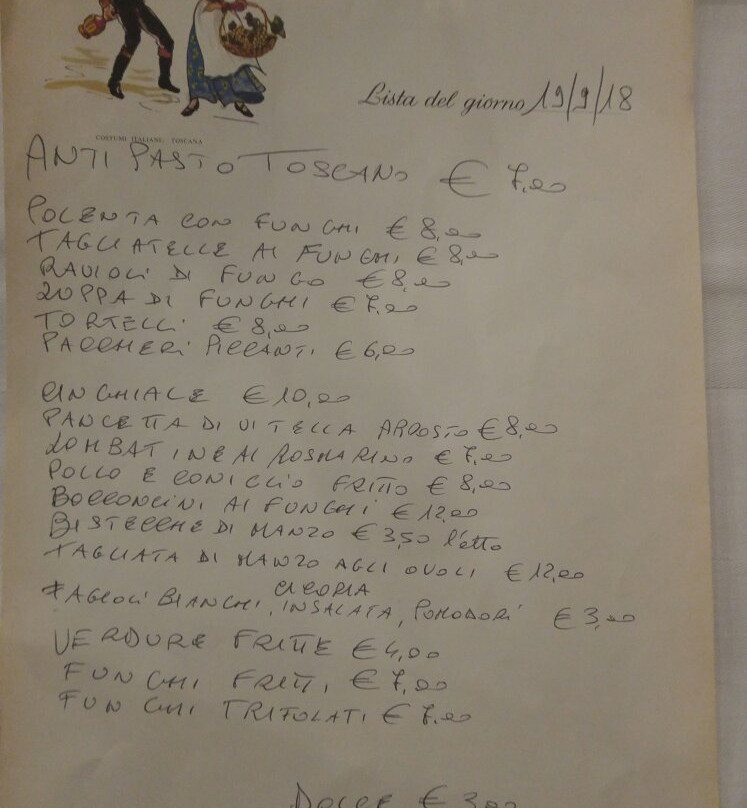 Lista del giorno 19/9/18
COSTUMI ITALIANI: TOSCANA
ANTIPASTO TOSCANO € 7,00
POLENTA CON FUNGHI € 8,00
TAGLIATELLE AI FUNGHI € 8,00
RAVIOLI DI FUNGO € 8,00
ZUPPA DI FUNGHI € 7,00
TORTELLI € 8,00
PACCHERI PICCANTI € 6,00
CINGHIALE € 10,00
PANCETTA DI VITELLA ARROSTO € 8,00
LOMBATINE AL ROSMARINO € 7,00
POLLO E CONIGLIO FRITTO € 8,00
BOCCONCINI AI FUNGHI € 12,00
BISTECCHE DI MANZO € 3,50 l'etto
TAGLIATA DI MANZO AGLI OVOLI € 12,00
CICORIA
FAGIOLI BIANCHI, INSALATA, POMODORI € 3,00
VERDURE FRITTE € 4,00
FUNGHI FRITTI € 7,00
FUNGHI TRIFOLATI € 7,00
DOLCE € 3,00